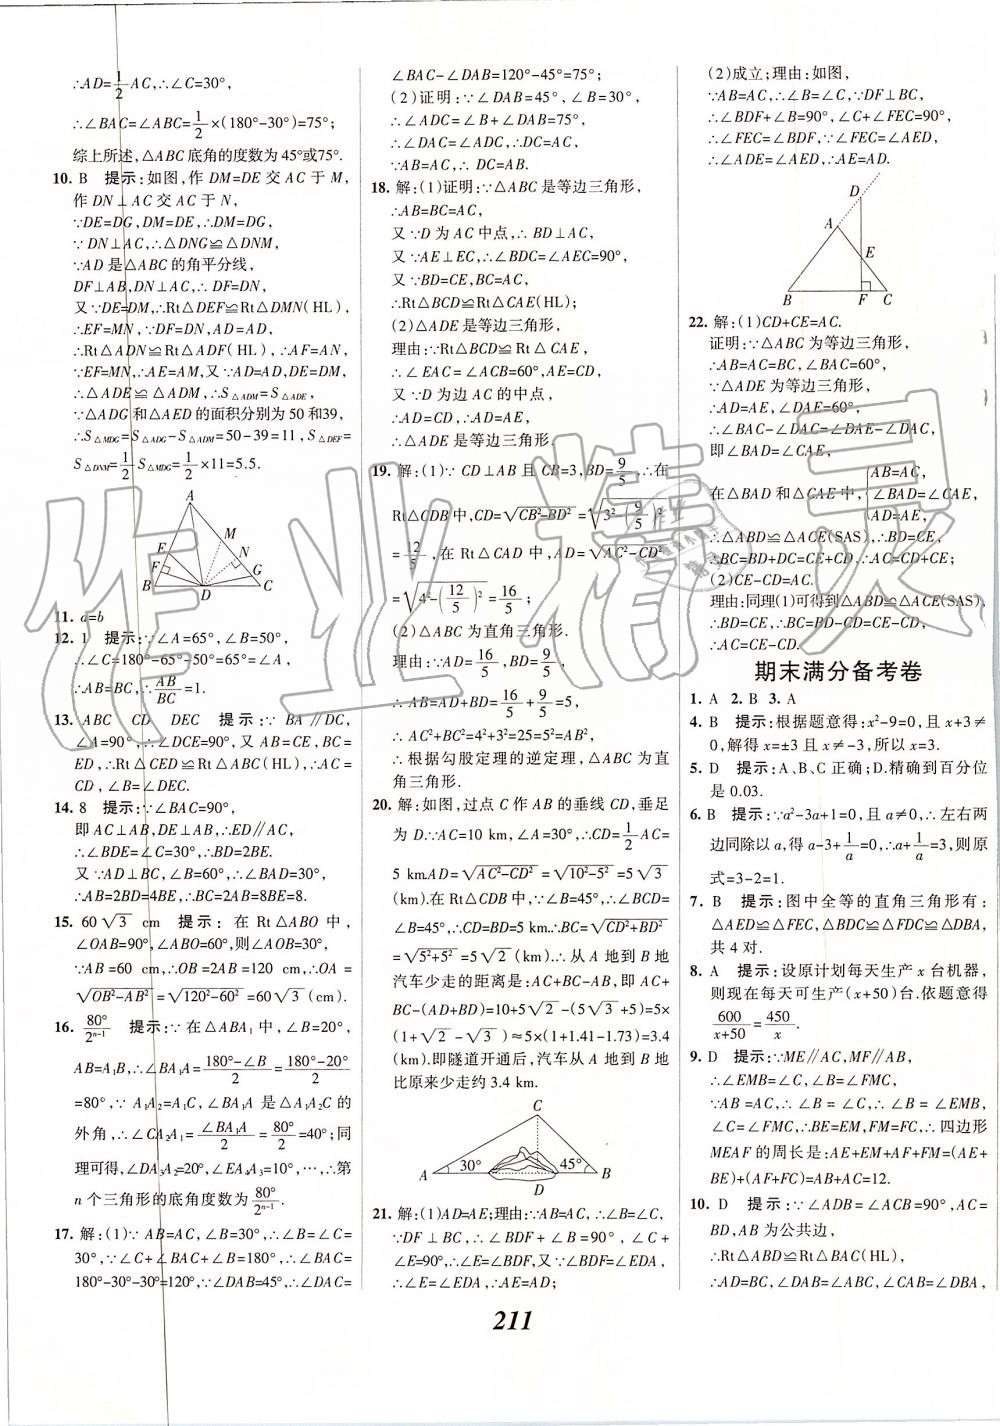 ∴AD=1/2 AC,∴∠C=30°,
∴∠BAC=∠ABC=1/2×(180°-30°)=75°;
综上所述,△ABC底角的度数为45°或75°.
10. B 提示:如图,作DM=DE交AC于M,
作DN⊥AC交AC于N,
∵DE=DG,DM=DE,∴DM=DG,
∵DN⊥AC,∴△DNG≌△DNM,
∵AD是△ABC的角平分线,
DF⊥AB,DN⊥AC,∴DF=DN,
又∵DE=DM,∴Rt△DEF≌Rt△DMN(HL),
∴EF=MN,∵DF=DN,AD=AD,
∴Rt△ADN≌Rt△ADF(HL),∴AF=AN,
∵EF=MN,∴AE=AM,又∵AD=AD,DE=DM,
∴△ADE≌△ADM,∴S△ADM=S△ADE,
∵△ADG和△AED的面积分别为50和39,
∴S△MDG=S△ADG-S△ADM=50-39=11,S△DEF=
S△DNM=1/2 S△MDG=1/2×11=5.5.
A
E M
F N
G
B D C
11. a=b
12. 1 提示:∵∠A=65°,∠B=50°,
∴∠C=180°-65°-50°=65°=∠A,
∴AB=BC,∴AB/BC=1.
13. ABC CD DEC 提示:∵BA∥DC,
∠A=90°,∴∠DCE=90°,又AB=CD,BC=
ED,∴Rt△CED≌Rt△BAC(HL),∴AC=
CD,∠B=∠DEC.
14. 8 提示:∵∠BAC=90°,
即AC⊥AB,DE⊥AB,∴ED∥AC,
∴∠BDE=∠C=30°,∴BD=2BE.
又∵AD⊥BC,∠B=60°,∴∠BAD=30°;
∴AB=2BD=4BE,∴BC=2AB=8BE=8.
15. 60√3 cm 提示:在Rt△ABO中,
∠OAB=90°,∠ABO=60°,则∠AOB=30°,
∵AB=60 cm,∴OB=2AB=120 cm,∴OA
=√(OB²-AB²)=√(120²-60²)=60√3(cm).
16. 80°/2ⁿ⁻¹ 提示:∵在△ABA₁中,∠B=20°,
AB=A₁B,∴∠BA₁A=(180°-∠B)/2=(180°-20°)/2
=80°,∵A₁A₂=A₁C,∠BA₁A是△A₁A₂C的
外角,∴∠CA₂A₁=∠BA₁A/2=80°/2=40°;同
理可得,∠DA₃A₂=20°,∠EA₄A₃=10°,…,∴第
n个三角形的底角度数为80°/2ⁿ⁻¹.
17. 解:(1)∵AB=AC,∠B=30°,∴∠B=∠C=
30°,∵∠C+∠BAC+∠B=180°,∴∠BAC=
180°-30°-30°=120°,∵∠DAB=45°,∴∠DAC=
∠BAC-∠DAB=120°-45°=75°;
(2)证明:∵∠DAB=45°,∠B=30°,
∴∠ADC=∠B+∠DAB=75°,
∴∠DAC=∠ADC,∴DC=AC,
∵AB=AC,∴DC=AB.
18. 解:(1)证明:∵△ABC是等边三角形,
∴AB=BC=AC,
又∵D为AC中点,∴BD⊥AC,
又∵AE⊥EC,∴∠BDC=∠AEC=90°,
又∵BD=CE,BC=AC,
∴Rt△BCD≌Rt△CAE(HL)
(2)△ADE是等边三角形,
理由:∵Rt△BCD≌Rt△CAE,
∴∠EAC=∠ACB=60°,AE=CD,
又∵D为边AC的中点,
∴AD=CD,∴AD=AE,
∴△ADE是等边三角形.
19. 解:(1)∵CD⊥AB且CB=3,BD=9/5,∴在
Rt△CDB中,CD=√(CB²-BD²)=√(3²-(9/5)²)
=12/5,在Rt△CAD中,AD=√(AC²-CD²)
=√(4²-(12/5)²)=16/5;
(2)△ABC为直角三角形.
理由:∵AD=16/5,BD=9/5,
∴AB=AD+BD=16/5+9/5=5,
∴AC²+BC²=4²+3²=25=5²=AB²,
∴根据勾股定理的逆定理,△ABC为直
角三角形.
20. 解:如图,过点C作AB的垂线CD,垂足
为D.∵AC=10 km,∠A=30°,∴CD=1/2 AC=
5 km.AD=√(AC²-CD²)=√(10²-5²)=5√3
(km).在Rt△BCD中,∵∠B=45°,∴∠BCD=
∠B=45°,∴CD=BD=5 km.∴BC=√(CD²+BD²)
=√(5²+5²)=5√2(km).∴从A地到B地
汽车少走的距离是:AC+BC-AB,即AC+
BC-(AD+BD)=10+5√2-(5√3+5)=5×
(1+√2-√3)≈5×(1+1.41-1.73)=3.4
(km).即隧道开通后,汽车从A地到B地
比原来少走约3.4 km.
C
A 30° 45° B
D
21. 解:(1)AD=AE;理由:∵AB=AC,∴∠B=∠C,
∵DF⊥BC,∴∠BDF+∠B=90°,∠C+
∠E=90°,∴∠BDF=∠E,∵∠BDF=∠EDA,
∴∠E=∠EDA,∴AE=AD;
(2)成立;理由:如图,
∵AB=AC,∴∠B=∠C,∵DF⊥BC,
∴∠BDF+∠B=90°,∠C+∠FEC=90°,
∴∠FEC=∠BDF,∵∠FEC=∠AED,
∴∠ADE=∠AED,∴AE=AD.
D
A
E
B F C
22. 解:(1)CD+CE=AC.
证明:∵△ABC为等边三角形,
∴AB=AC=BC,∠BAC=60°,
∵△ADE为等边三角形,
∴AD=AE,∠DAE=60°,
∴∠BAC-∠DAC=∠DAE-∠DAC,
即∠BAD=∠CAE,
在△BAD和△CAE中,{AB=AC, ∠BAD=∠CAE, AD=AE,
∴△ABD≌△ACE(SAS),∴BD=CE,
∴BC=BD+DC=CE+CD,∴AC=CD+CE;
(2)CE-CD=AC.
理由:同理(1)可得到△ABD≌△ACE(SAS),
∴BD=CE,∴BC=BD-CD=CE-CD,
∴AC=CE-CD.
期末满分备考卷
1. A 2. B 3. A
4. B 提示:根据题意得:x²-9=0,且x+3≠
0,解得x=±3且x≠-3,所以x=3.
5. D 提示:A、B、C正确;D.精确到百分位
是0.03.
6. B 提示:∵a²-3a+1=0,且a≠0,∴左右两
边同除以a,得a-3+1/a=0,∴a+1/a=3,则原
式=3-2=1.
7. B 提示:图中全等的直角三角形有:
△AED≌△FEC,△BDC≌△FDC≌△DBA,
共4对.
8. A 提示:设原计划每天生产x台机器,
则现在每天可生产(x+50)台.依题意得
600/(x+50)=450/x.
9. D 提示:∵ME∥AC,MF∥AB,
∴∠EMB=∠C,∠B=∠FMC,
∵AB=AC,∴∠B=∠C,∴∠B=∠EMB,
∠C=∠FMC,∴BE=EM,FC=FM,∴四边形
MEAF的周长是:AE+EM+AF+FM=(AE+
BE)+(AF+FC)=AB+AC=12.
10. D 提示:∵∠ADB=∠ACB=90°,AC=
BD,AB为公共边,
∴Rt△ABD≌Rt△BAC(HL),
∴AD=BC,∠DAB=∠ABC,∠CAB=∠DBA,
211
作业精灵